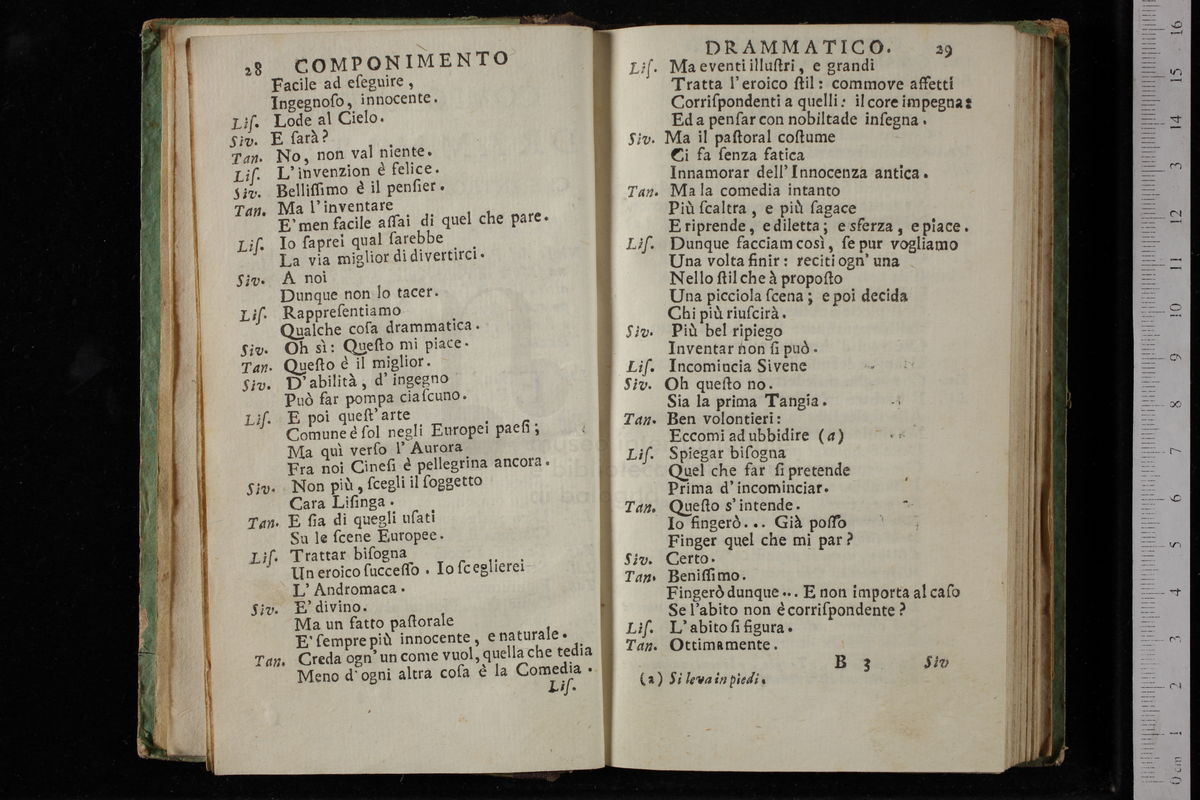 28 COMPONIMENTO
Facile ad eſeguire,
Ingegnoſo, innocente.
Liſ. Lode al Cielo.
Siv. E ſarà?
Tan. No, non val niente.
Liſ. L'invenzion è felice.
Siv. Belliſſimo è il penſier.
Tan. Ma l'inventare
E' men facile aſſai di quel che pare.
Liſ. Io ſaprei qual ſarebbe
La via miglior di divertirci.
Siv. A noi
Dunque non lo tacer.
Liſ. Rappreſentiamo
Qualche coſa drammatica.
Siv. Oh sì: Queſto mi piace.
Tan. Queſto è il miglior.
Siv. D'abilità, d'ingegno
Può far pompa ciaſcuno.
Liſ. E poi queſt'arte
Comune è ſol negli Europei paeſi;
Ma quì verſo l'Aurora
Fra noi Cineſi è pellegrina ancora.
Siv. Non più, ſcegli il ſoggetto
Cara Liſinga.
Tan. E ſia di quegli uſati
Su le ſcene Europee.
Liſ. Trattar biſogna
Un eroico ſucceſſo. Io ſceglierei
L'Andromaca.
Siv. E' divino.
Ma un fatto paſtorale
E' ſempre più innocente, e naturale.
Tan. Creda ogn'un come vuol, quella che tedia
Meno d'ogni altra coſa è la Comedia.
Liſ.
DRAMMATICO. 29
Liſ. Ma eventi illuſtri, e grandi
Tratta l'eroico ſtil: commove affetti
Corriſpondenti a quelli: il core impegna:
Ed a penſar con nobiltade inſegna.
Siv. Ma il paſtoral coſtume
Ci fa ſenza fatica
Innamorar dell'Innocenza antica.
Tan. Ma la comedia intanto
Più ſcaltra, e più ſagace
E riprende, e diletta; e sferza, e piace.
Liſ. Dunque facciam così, ſe pur vogliamo
Una volta finir: reciti ogn'una
Nello ſtil che à propoſto
Una picciola ſcena; e poi decida
Chi più riuſcirà.
Siv. Più bel ripiego
Inventar non ſi può.
Liſ. Incomincia Sivene
Siv. Oh queſto no.
Sia la prima Tangia.
Tan. Ben volontieri:
Eccomi ad ubbidire (a)
Liſ. Spiegar biſogna
Quel che far ſi pretende
Prima d'incominciar.
Tan. Queſto s'intende.
Io fingerò... Già poſſo
Finger quel che mi par?
Siv. Certo.
Tan. Beniſſimo.
Fingerò dunque... E non importa al caſo
Se l'abito non è corriſpondente?
Liſ. L'abito ſi figura.
Tan. Ottimamente.
B 3 Siv
(a) Si leva in piedi.
0 cm 1 2 3 4 5 6 7 8 9 10 11 12 13 14 15 16